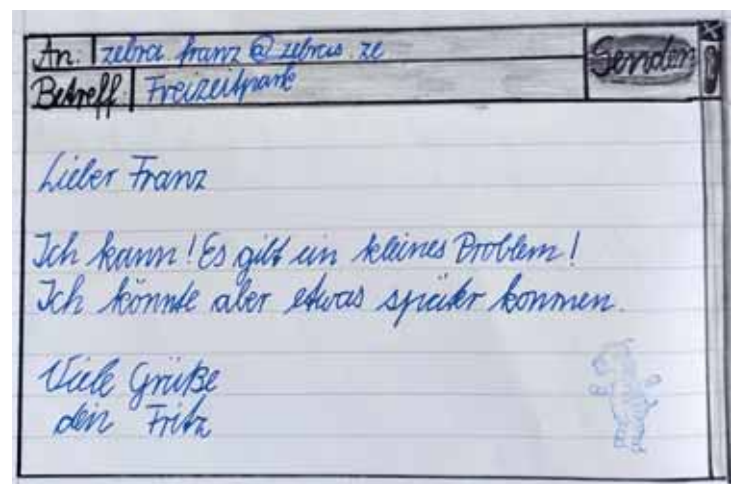 An: zebra franz@zebras.ze
Senden
Betreff: Freizeitpark
Lieber Franz
Ich kann! Es gibt ein kleines Problem!
Ich könnte aber etwas später kommen.
Viele Grüße
dein Fritz